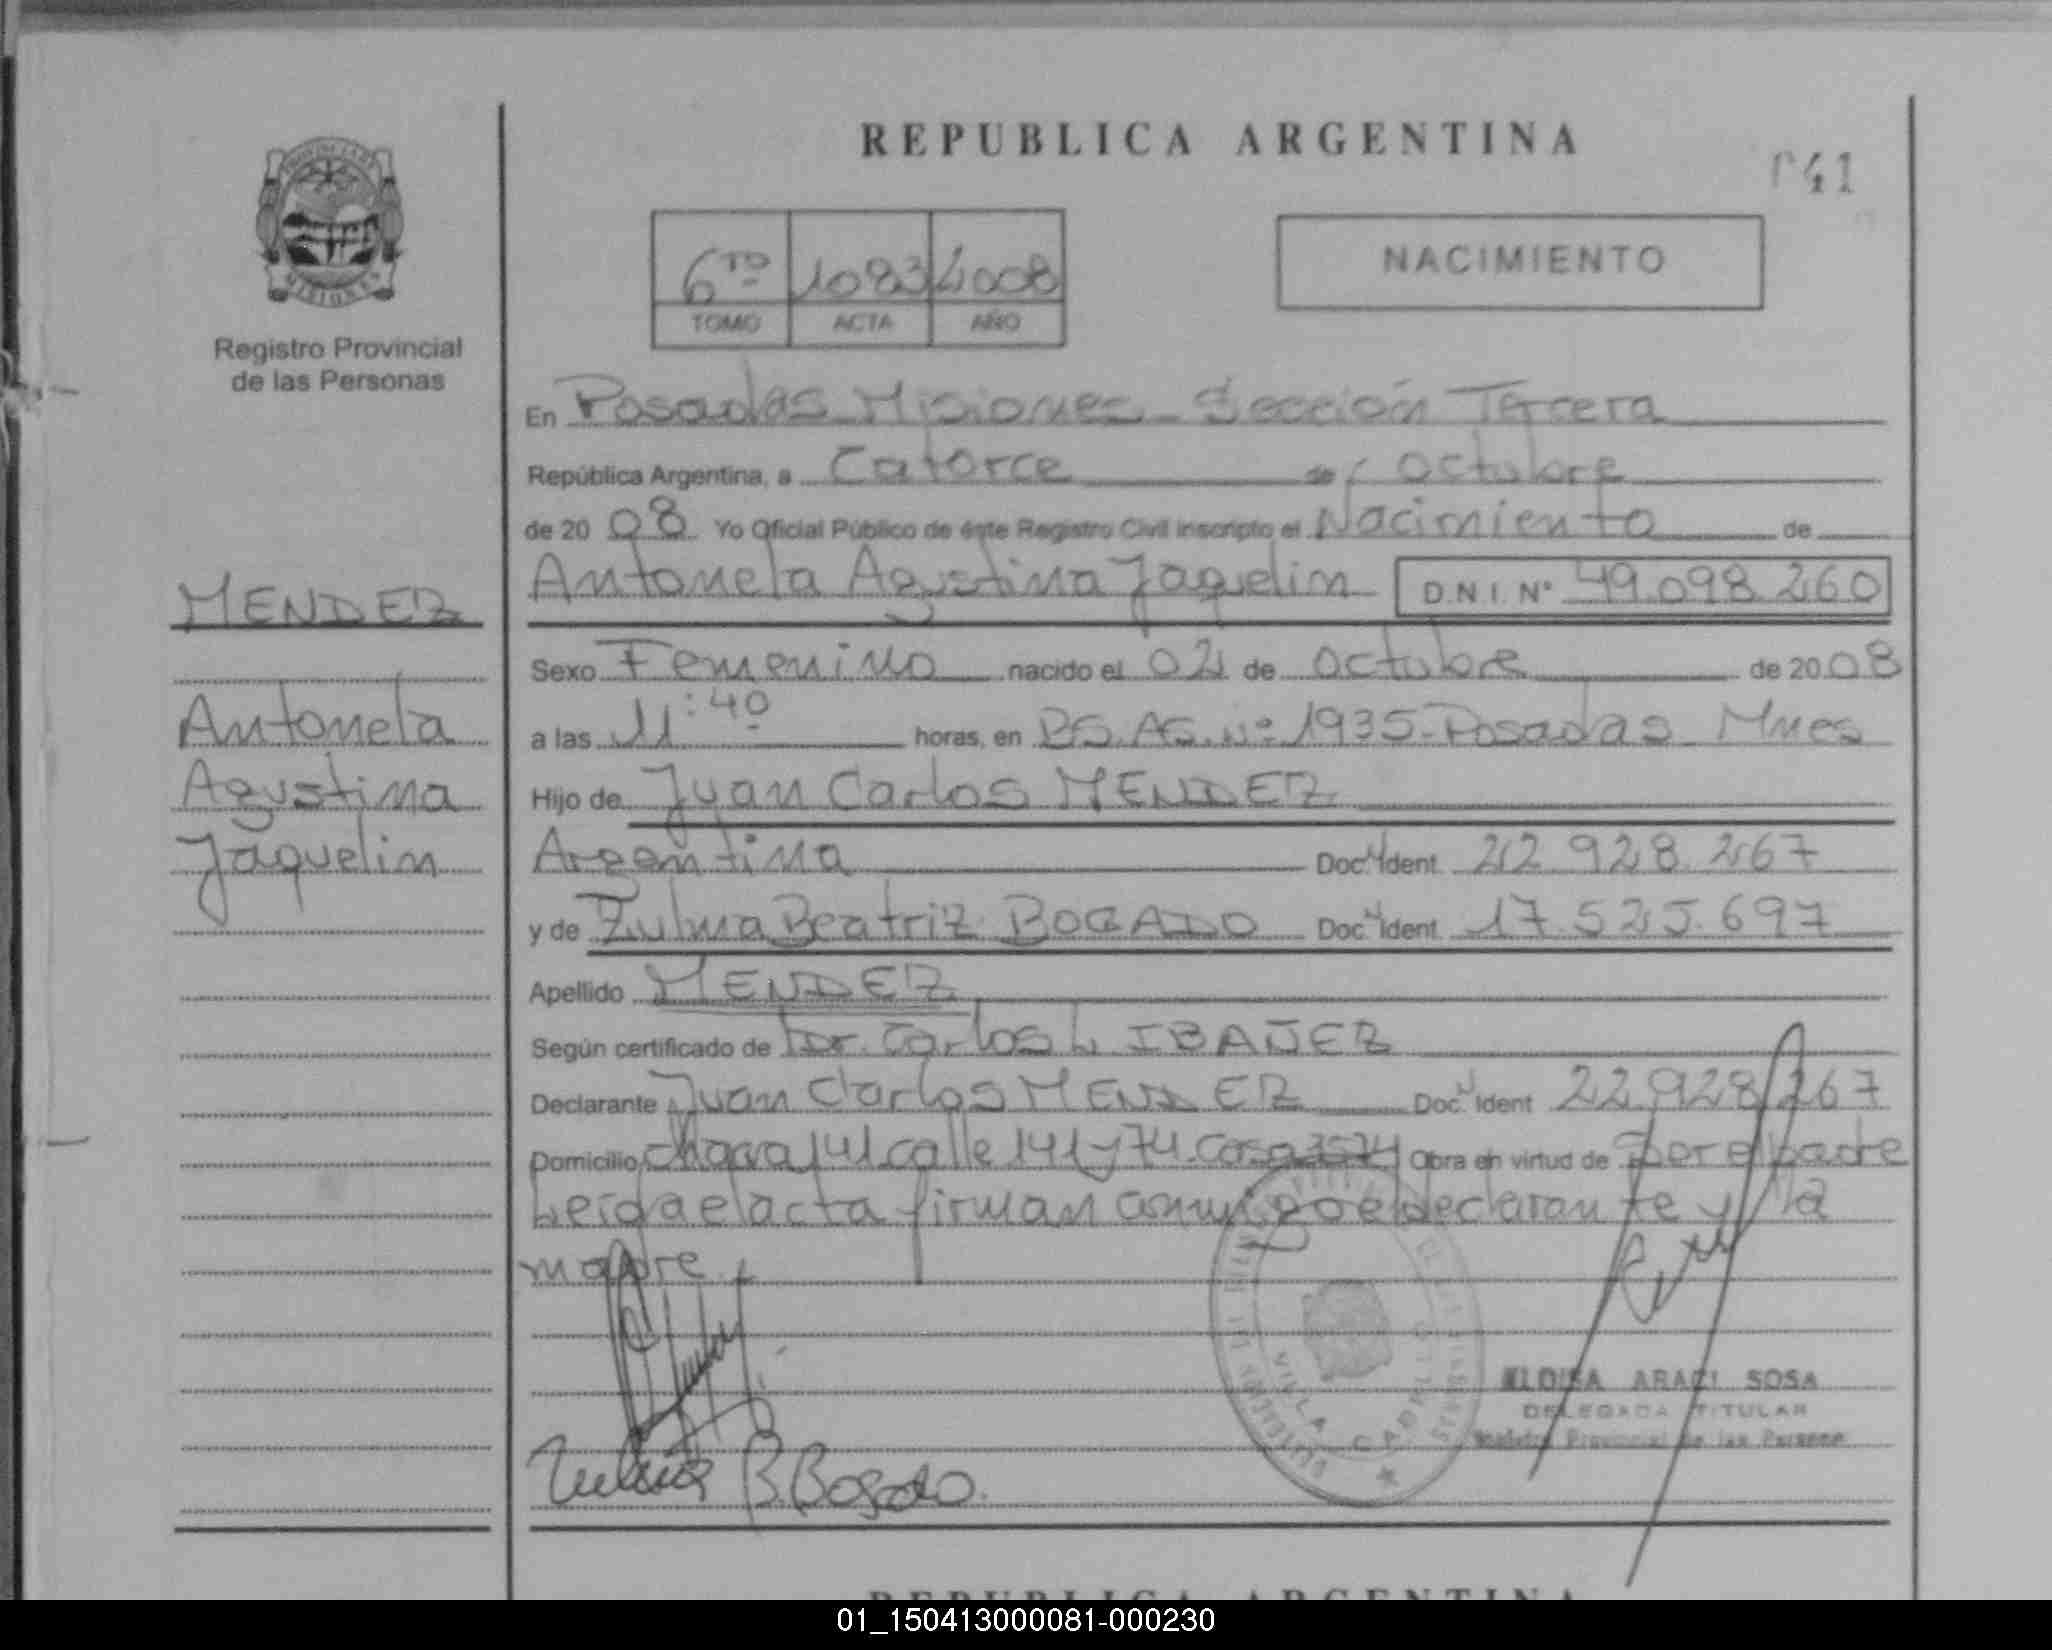 REPUBLICA ARGENTINA
041
PROVINCIA DE MISIONES
Registro Provincial
de las Personas
6TO 1083 2008
TOMO ACTA AÑO
NACIMIENTO
En Posadas Misiones Sección Tercera
República Argentina, a Catorce de Octubre
de 20 08 Yo Oficial Público de éste Registro Civil inscripto el Nacimiento de
Antonela Agustina Jaquelin D.N.I. Nº 49.098.260
MENDEZ
Antonela
Agustina
Jaquelin
Sexo Femenino nacido el 02 de Octubre de 20 08
a las 11:40 horas, en BS.AS. Nº 1935 Posadas Mnes
Hijo de Juan Carlos MENDEZ
Argentina Doc. Ident. 22.928.267
y de Zulma Beatriz BOGADO Doc. Ident. 17.525.697
Apellido MENDEZ
Según certificado de Dr. Carlos L. IBAÑEZ
Declarante Juan Carlos MENDEZ Doc. Ident 22.928.267
Domicilio Chacra 141 calle 141 y 74 casa Obra en virtud de Ser el padre
Leida el acta firman conmigo el declarante y la
madre
Zulma B. Bogado.
VILLA CABELLO
ELOISA ARACI SOSA
DELEGADA TITULAR
Registro Provincial de las Personas
REPUBLICA ARGENTINA
01_150413000081-000230